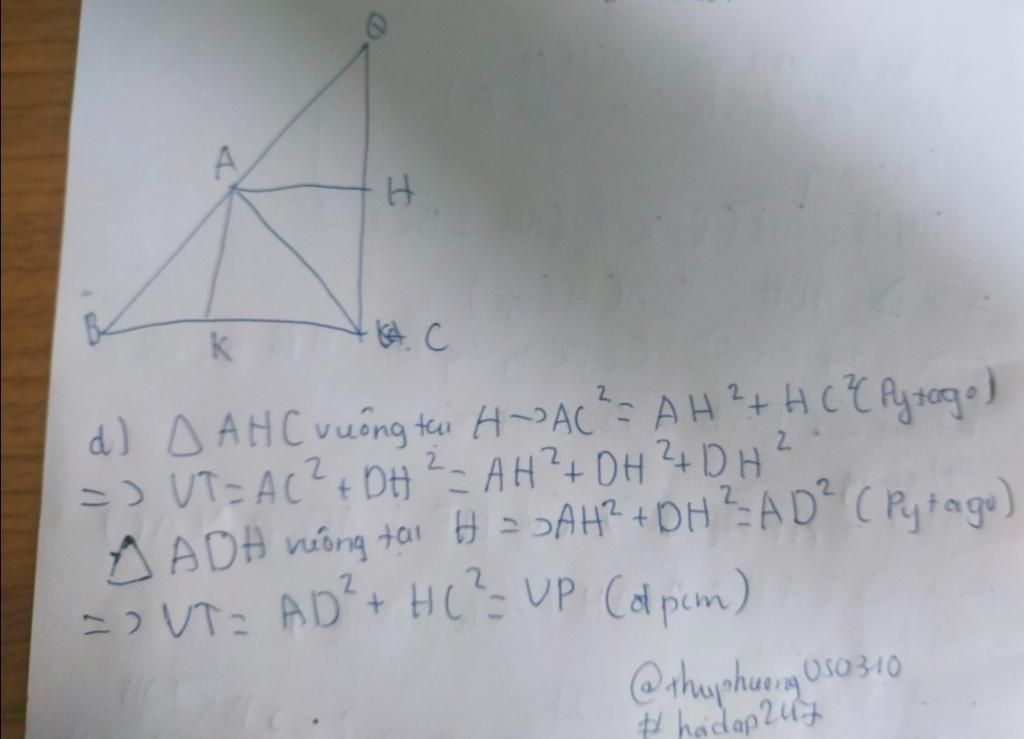 D
A
H
B
K
C
d) Δ AHC vuông tại H -> AC² = AH² + HC² (Pytago)
=> VT = AC² + DH² = AH² + DH² + DH²
Δ ADH vuông tại H => AH² + DH² = AD² (Pytago)
=> VT = AD² + HC² = VP (đpcm)
@thuphuong050310
# hoidap247